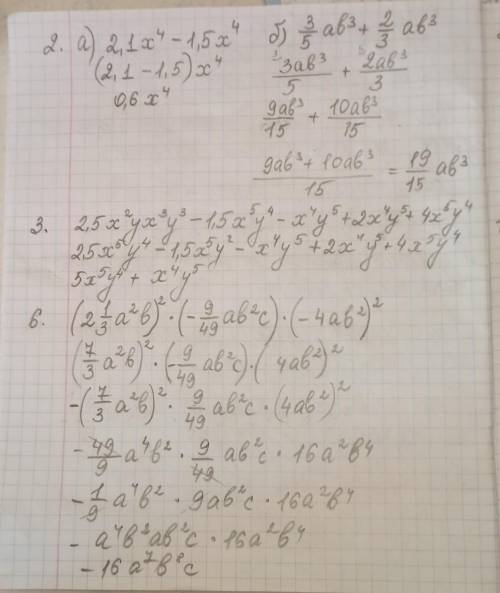 2. а) 2,1x⁴ - 1,5x⁴
(2,1 - 1,5)x⁴
0,6x⁴
б) 3/5 ab³ + 2/3 ab³
3ab³/5 + 2ab³/3
9ab³/15 + 10ab³/15
9ab³ + 10ab³/15 = 19/15 ab³
3. 2,5x²yx³y³ - 1,5x⁵y⁴ - x⁴y⁵ + 2x⁴y⁵ + 4x⁵y⁴
2,5x⁵y⁴ - 1,5x⁵y² - x⁴y⁵ + 2x⁴y⁵ + 4x⁵y⁴
5x⁵y⁴ + x⁴y⁵
6. (2 1/3 a²b)² · (- 9/49 ab²c) · (- 4ab²)²
(7/3 a²b)² · (- 9/49 ab²c) · (4ab²)²
-(7/3 a²b)² · 9/49 ab²c · (4ab²)²
- 49/9 a⁴b² · 9/49 ab²c · 16a²b⁴
- 1/9 a⁴b² · 9ab²c · 16a²b⁴
- a⁴b²ab²c · 16a²b⁴
- 16a⁷b⁸c